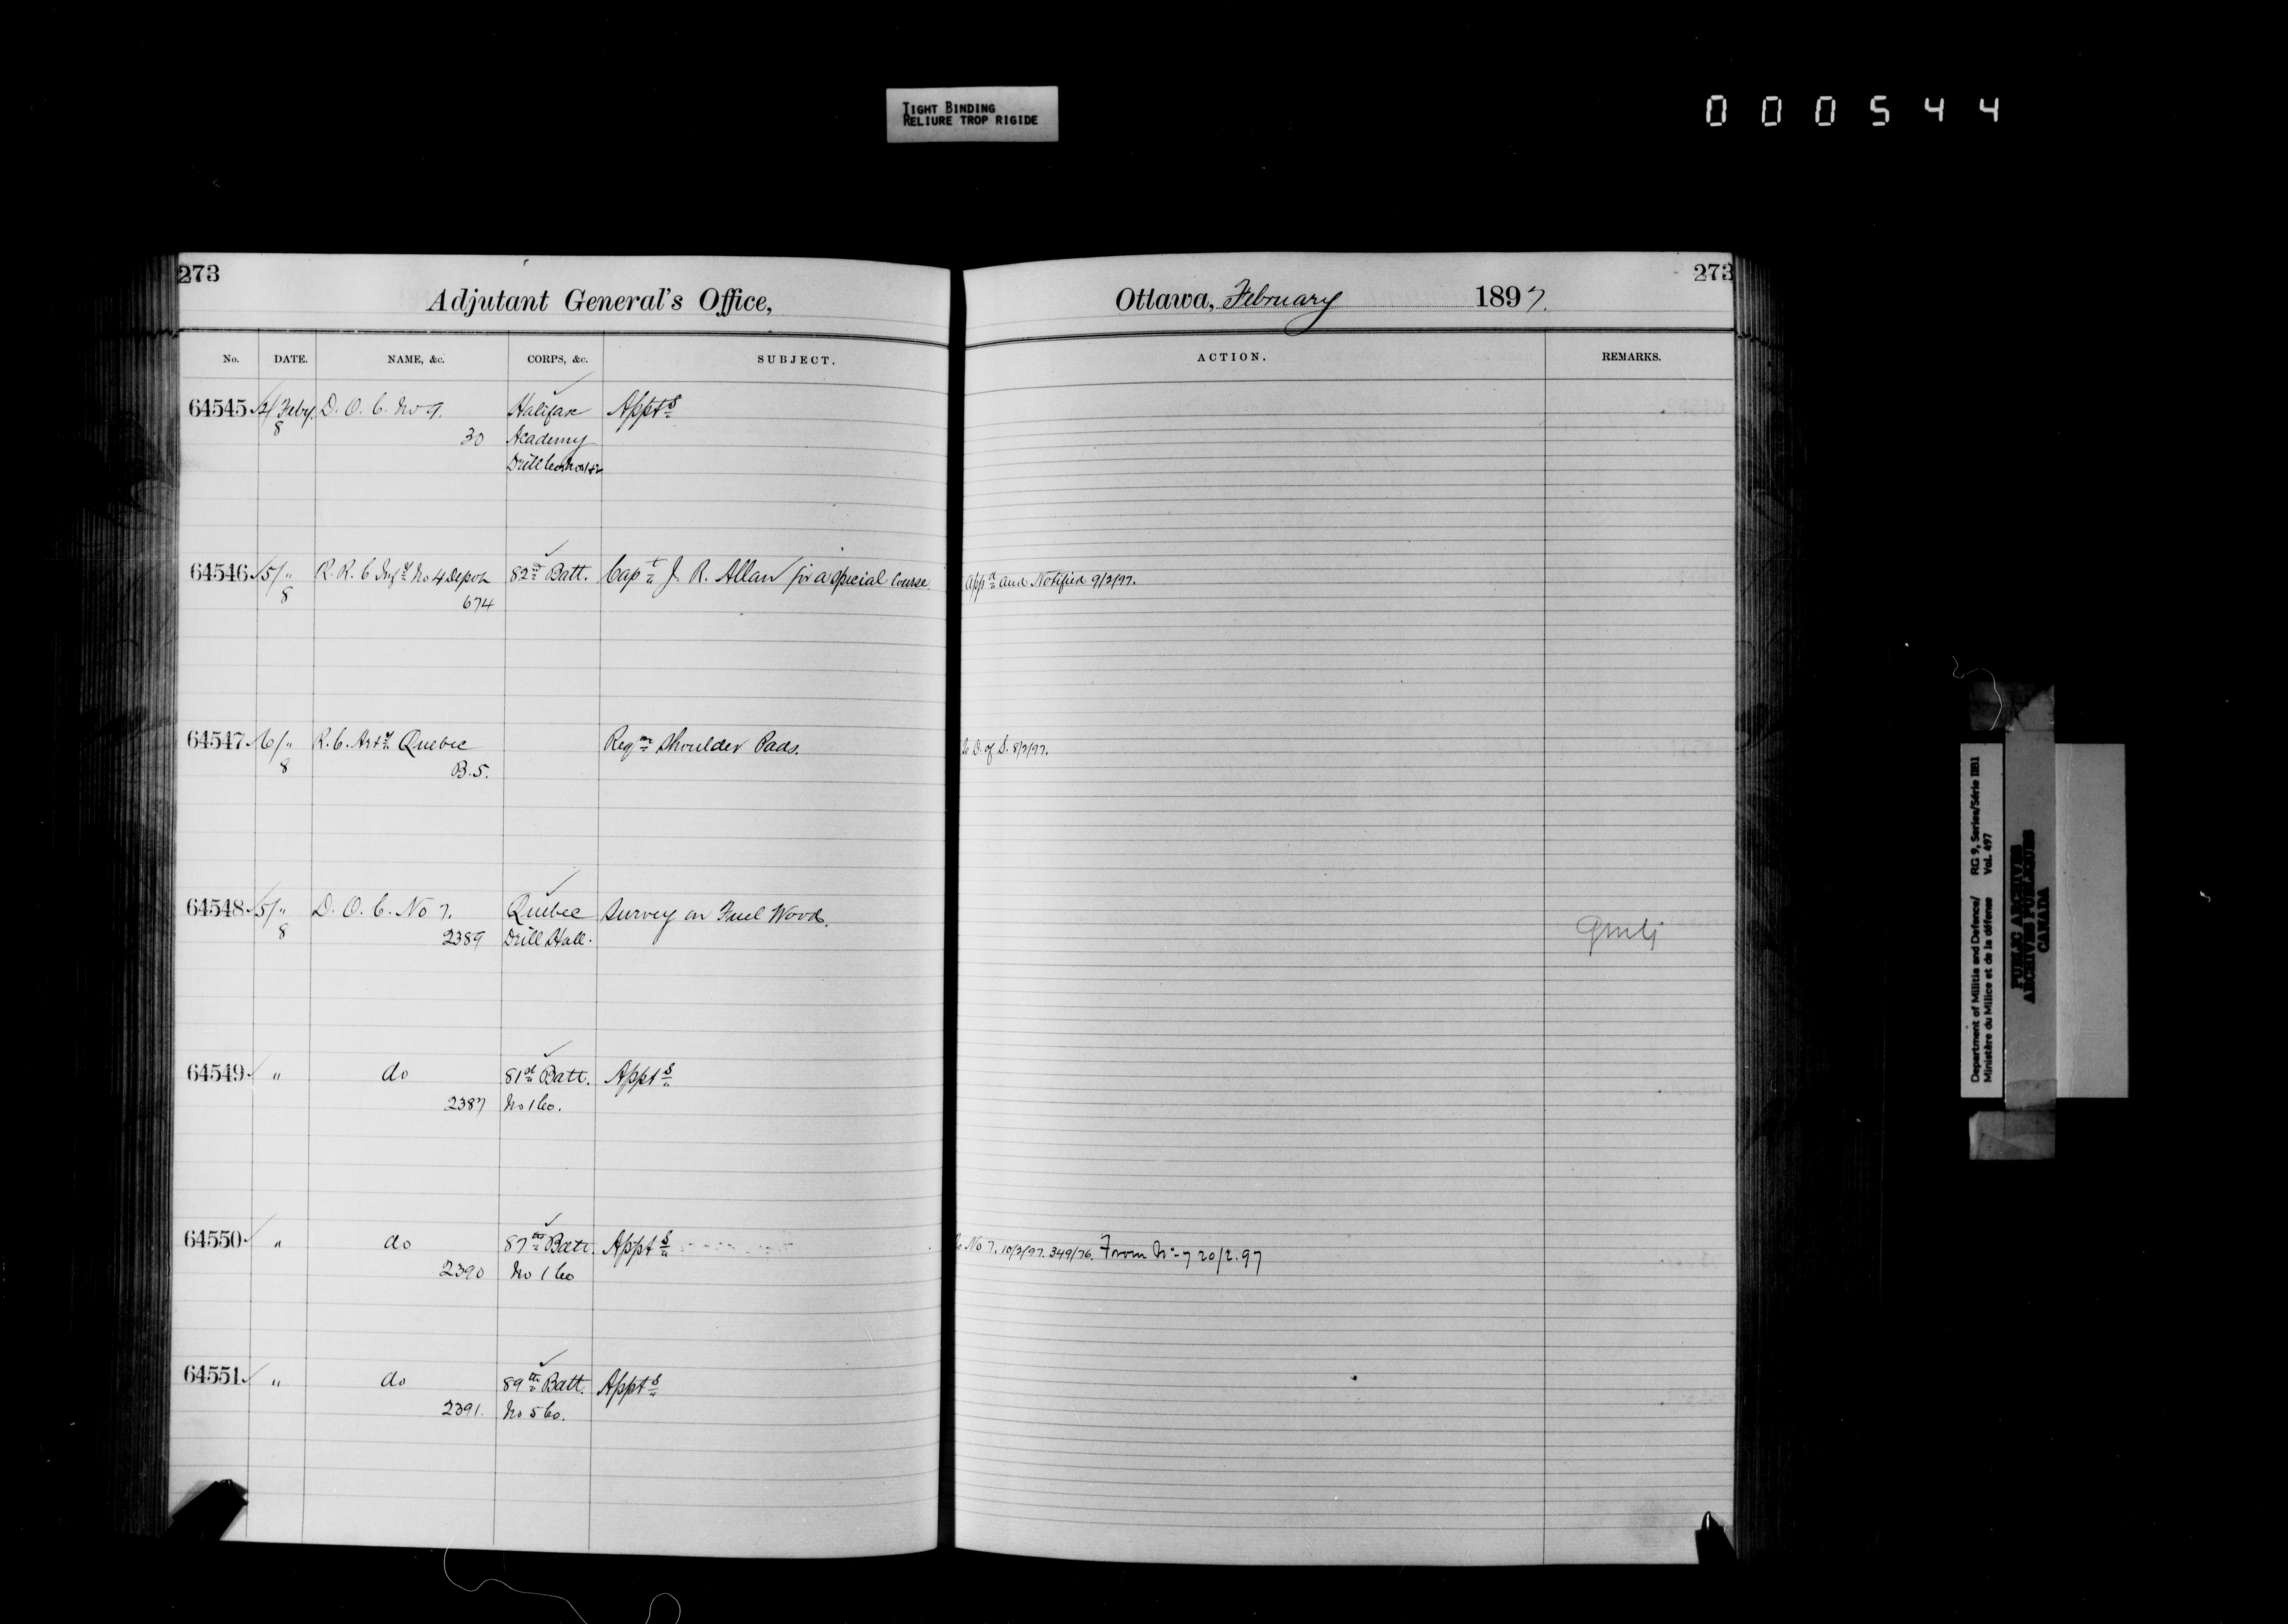 TIGHT BINDING
RELIURE TROP RIGIDE
000544
273
273
Adjutant General's Office,
Ottawa, February 1897.
No. DATE. NAME, &c. CORPS, &c. SUBJECT. ACTION. REMARKS.
64545 Feby. D. O. C. No 9. Halifax Appts
8 30 Academy
Drill
64546 5/ " R. R. C. Infy No 4 Depot 82nd Batt. Capt J. R. Allan for a special course. App'd and Notified 9/2/97.
8 674
64547 6/ " R. C. Arty Quebec Reqn Shoulder Pads. To D. of S. 8/2/97.
8 B.5.
64548 5/ " D. O. C. No 7. Quebec Survey on Fuel Wood.
8 2389 Drill Hall.
64549 " do 81st Batt. Appts
2387 No 1 Co.
64550 " do 87th Batt. Appts To No 7. 10/2/97. 349/76. From No 7 20/2.97
2390 No 1 Co
64551 " do 89th Batt. Appts
2391. No 5 Co.
Department of Militia and Defence/ RG 9, Series/Série IIB1
Ministère du Milice et de la défense Vol. 497
PUBLIC ARCHIVES
ARCHIVES PUBLIQUES
CANADA